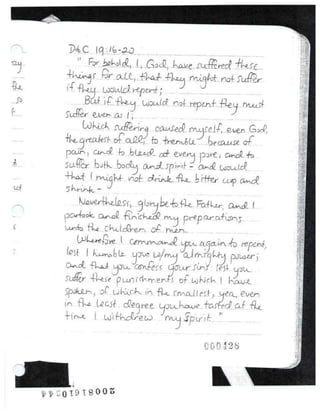 D&C 19:16-20
"For behold, I, God, have suffered these
things for all, that they might not suffer
if they would repent;
But if they would not repent they must
suffer even as I;
Which suffering caused myself, even God,
the greatest of all, to tremble because of
pain, and to bleed at every pore, and to
suffer both body and spirit - and would
that I might not drink the bitter cup and
shrink -
Nevertheless, glory be to the Father, and I
partook and finished my preparations
unto the children of men.
Wherefore I command you again to repent,
lest I humble you w/my almighty power;
and that you confess your sins lest you
suffer these punishments of which I have
spoken, of which in the smallest, yea, even
in the least degree you have tasted at the
time I withdrew my Spirit."
000428